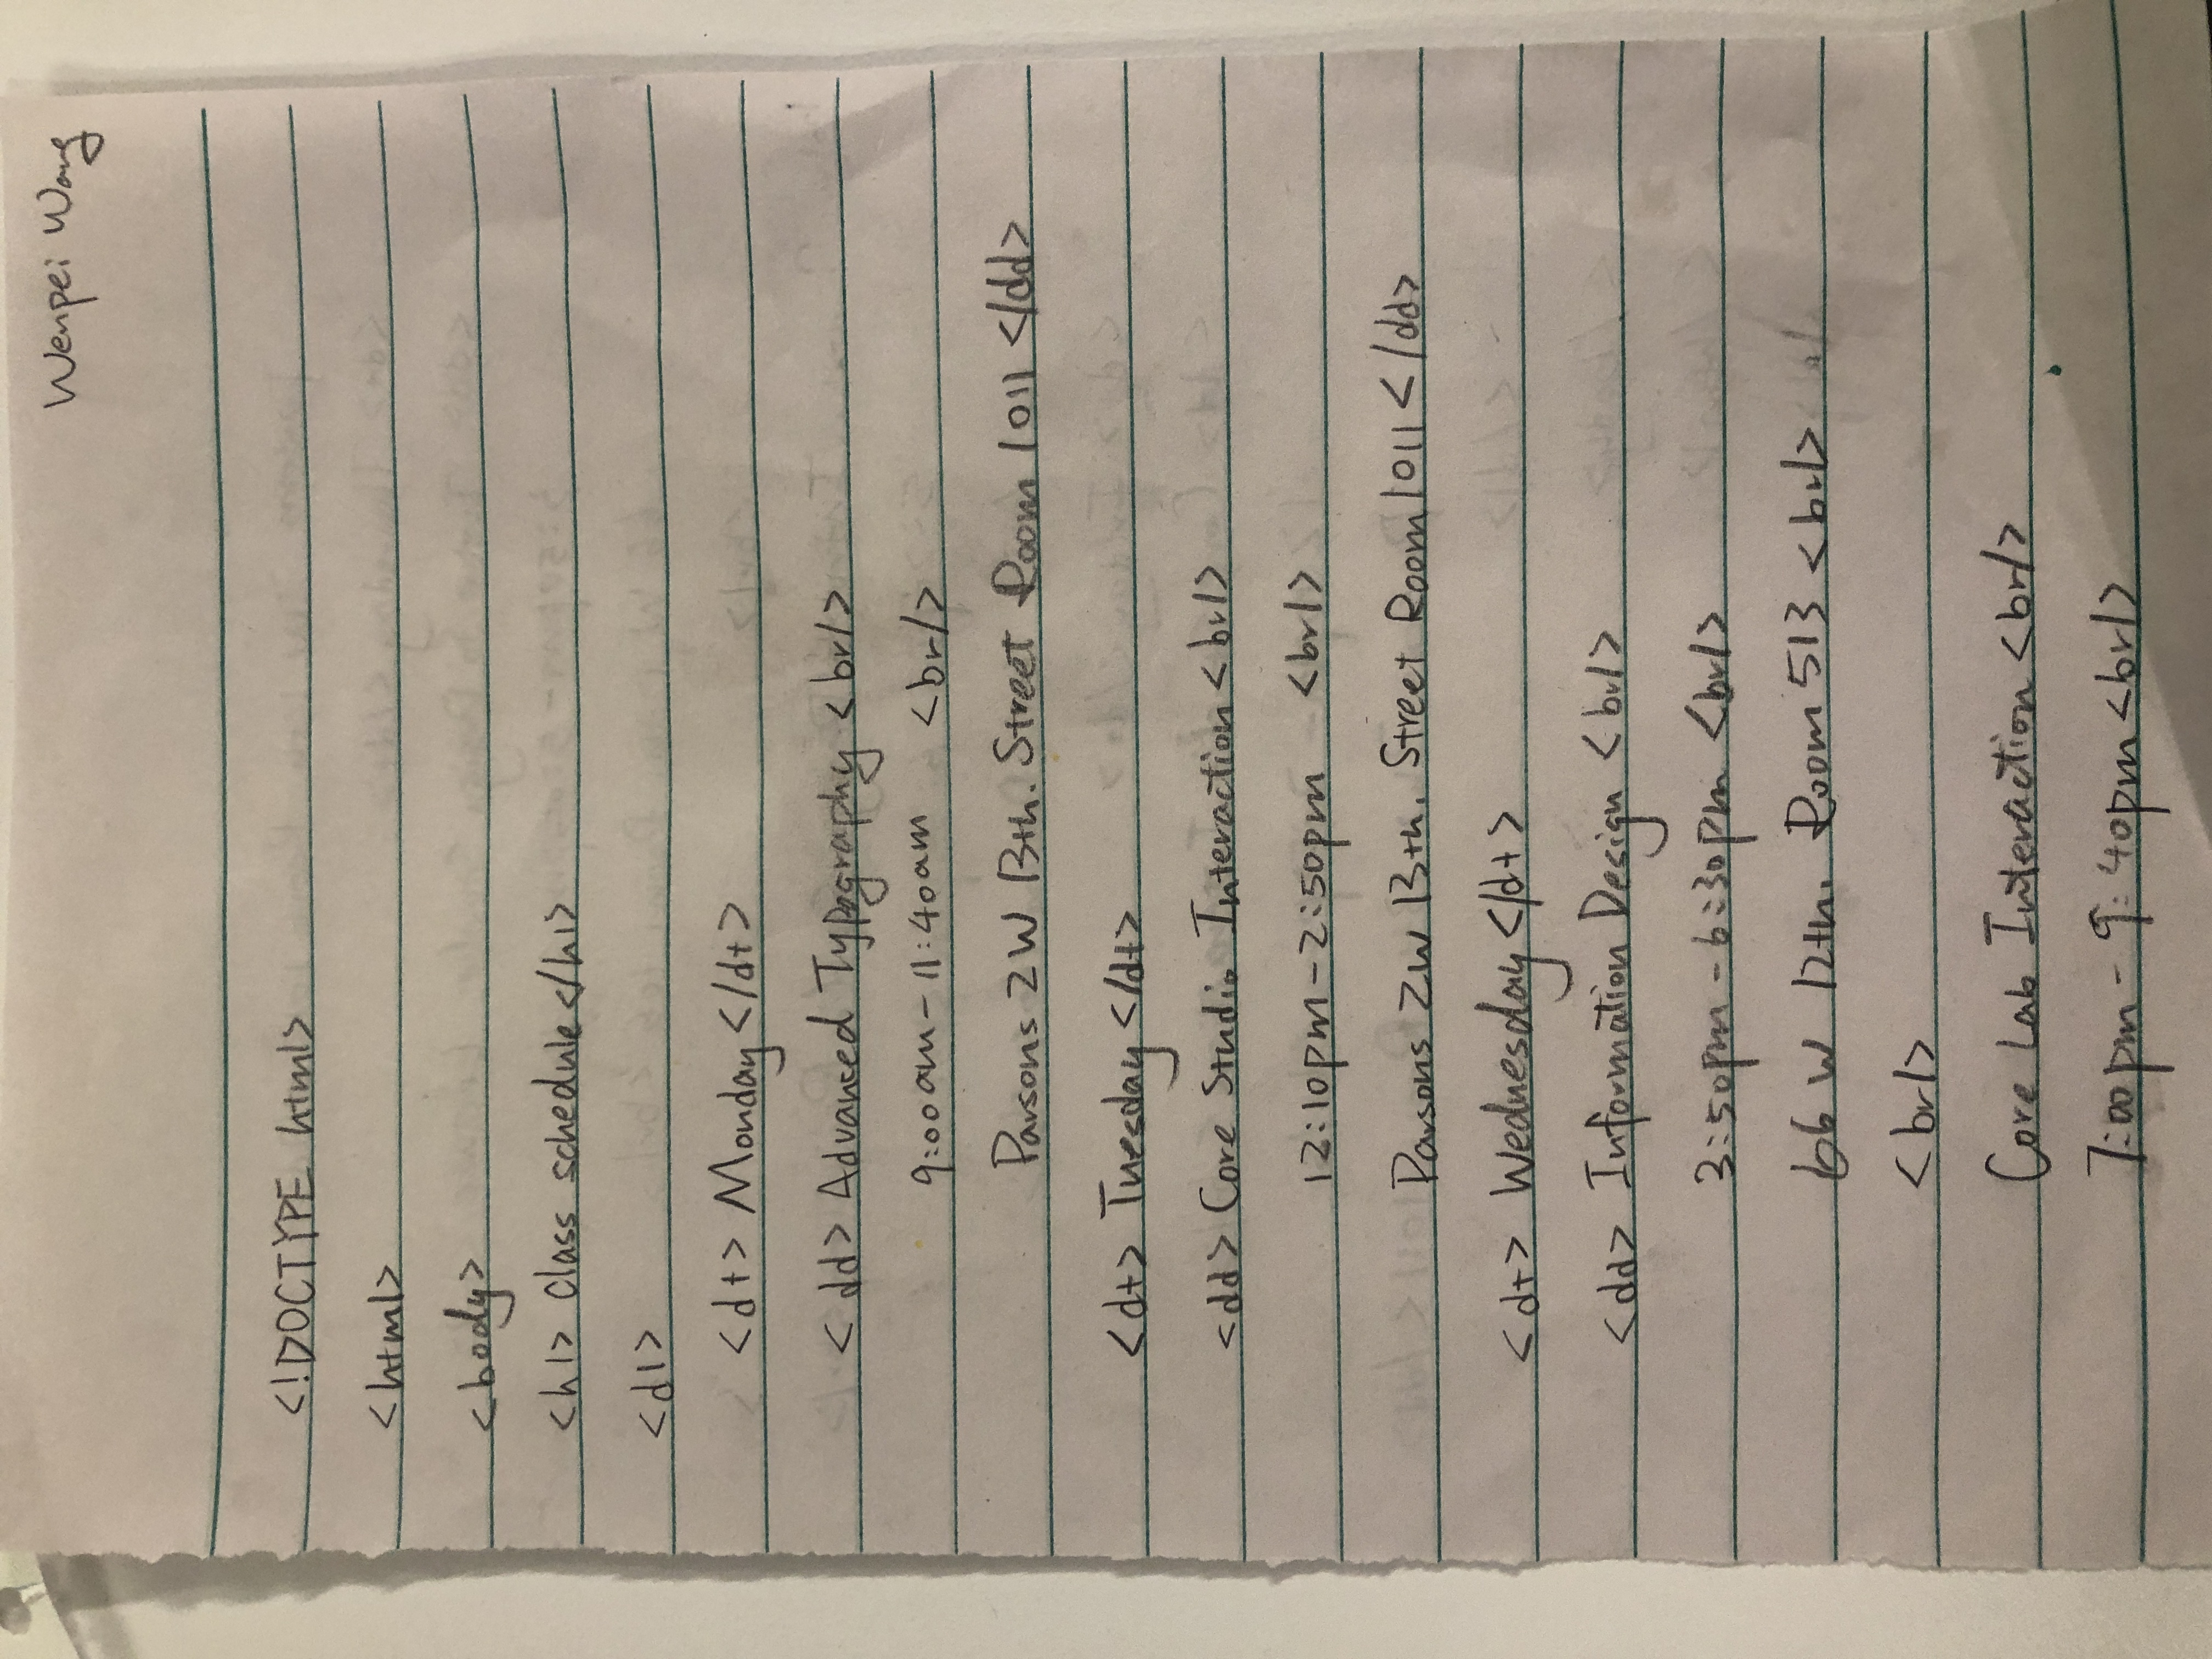 Wenpei Wang
<!DOCTYPE html>
<html>
<body>
<h1> Class schedule</h1>
<dl>
<dt> Monday</dt>
<dd> Advanced Typography <br/>
9:00am-11:40am <br/>
Parsons 2W 13th. Street Room 1011 </dd>
<dt> Tuesday </dt>
<dd> Core Studio Interaction <br/>
12:10pm-2:50pm <br/>
Parsons 2W 13th. Street Room 1011 </dd>
<dt> Wednesday </dt>
<dd> Information Design <br/>
3:50pm-6:30pm <br/>
66 W 12th. Room 513 <br/>
<br/>
Core Lab Interaction <br/>
7:00pm - 9:40pm <br/>